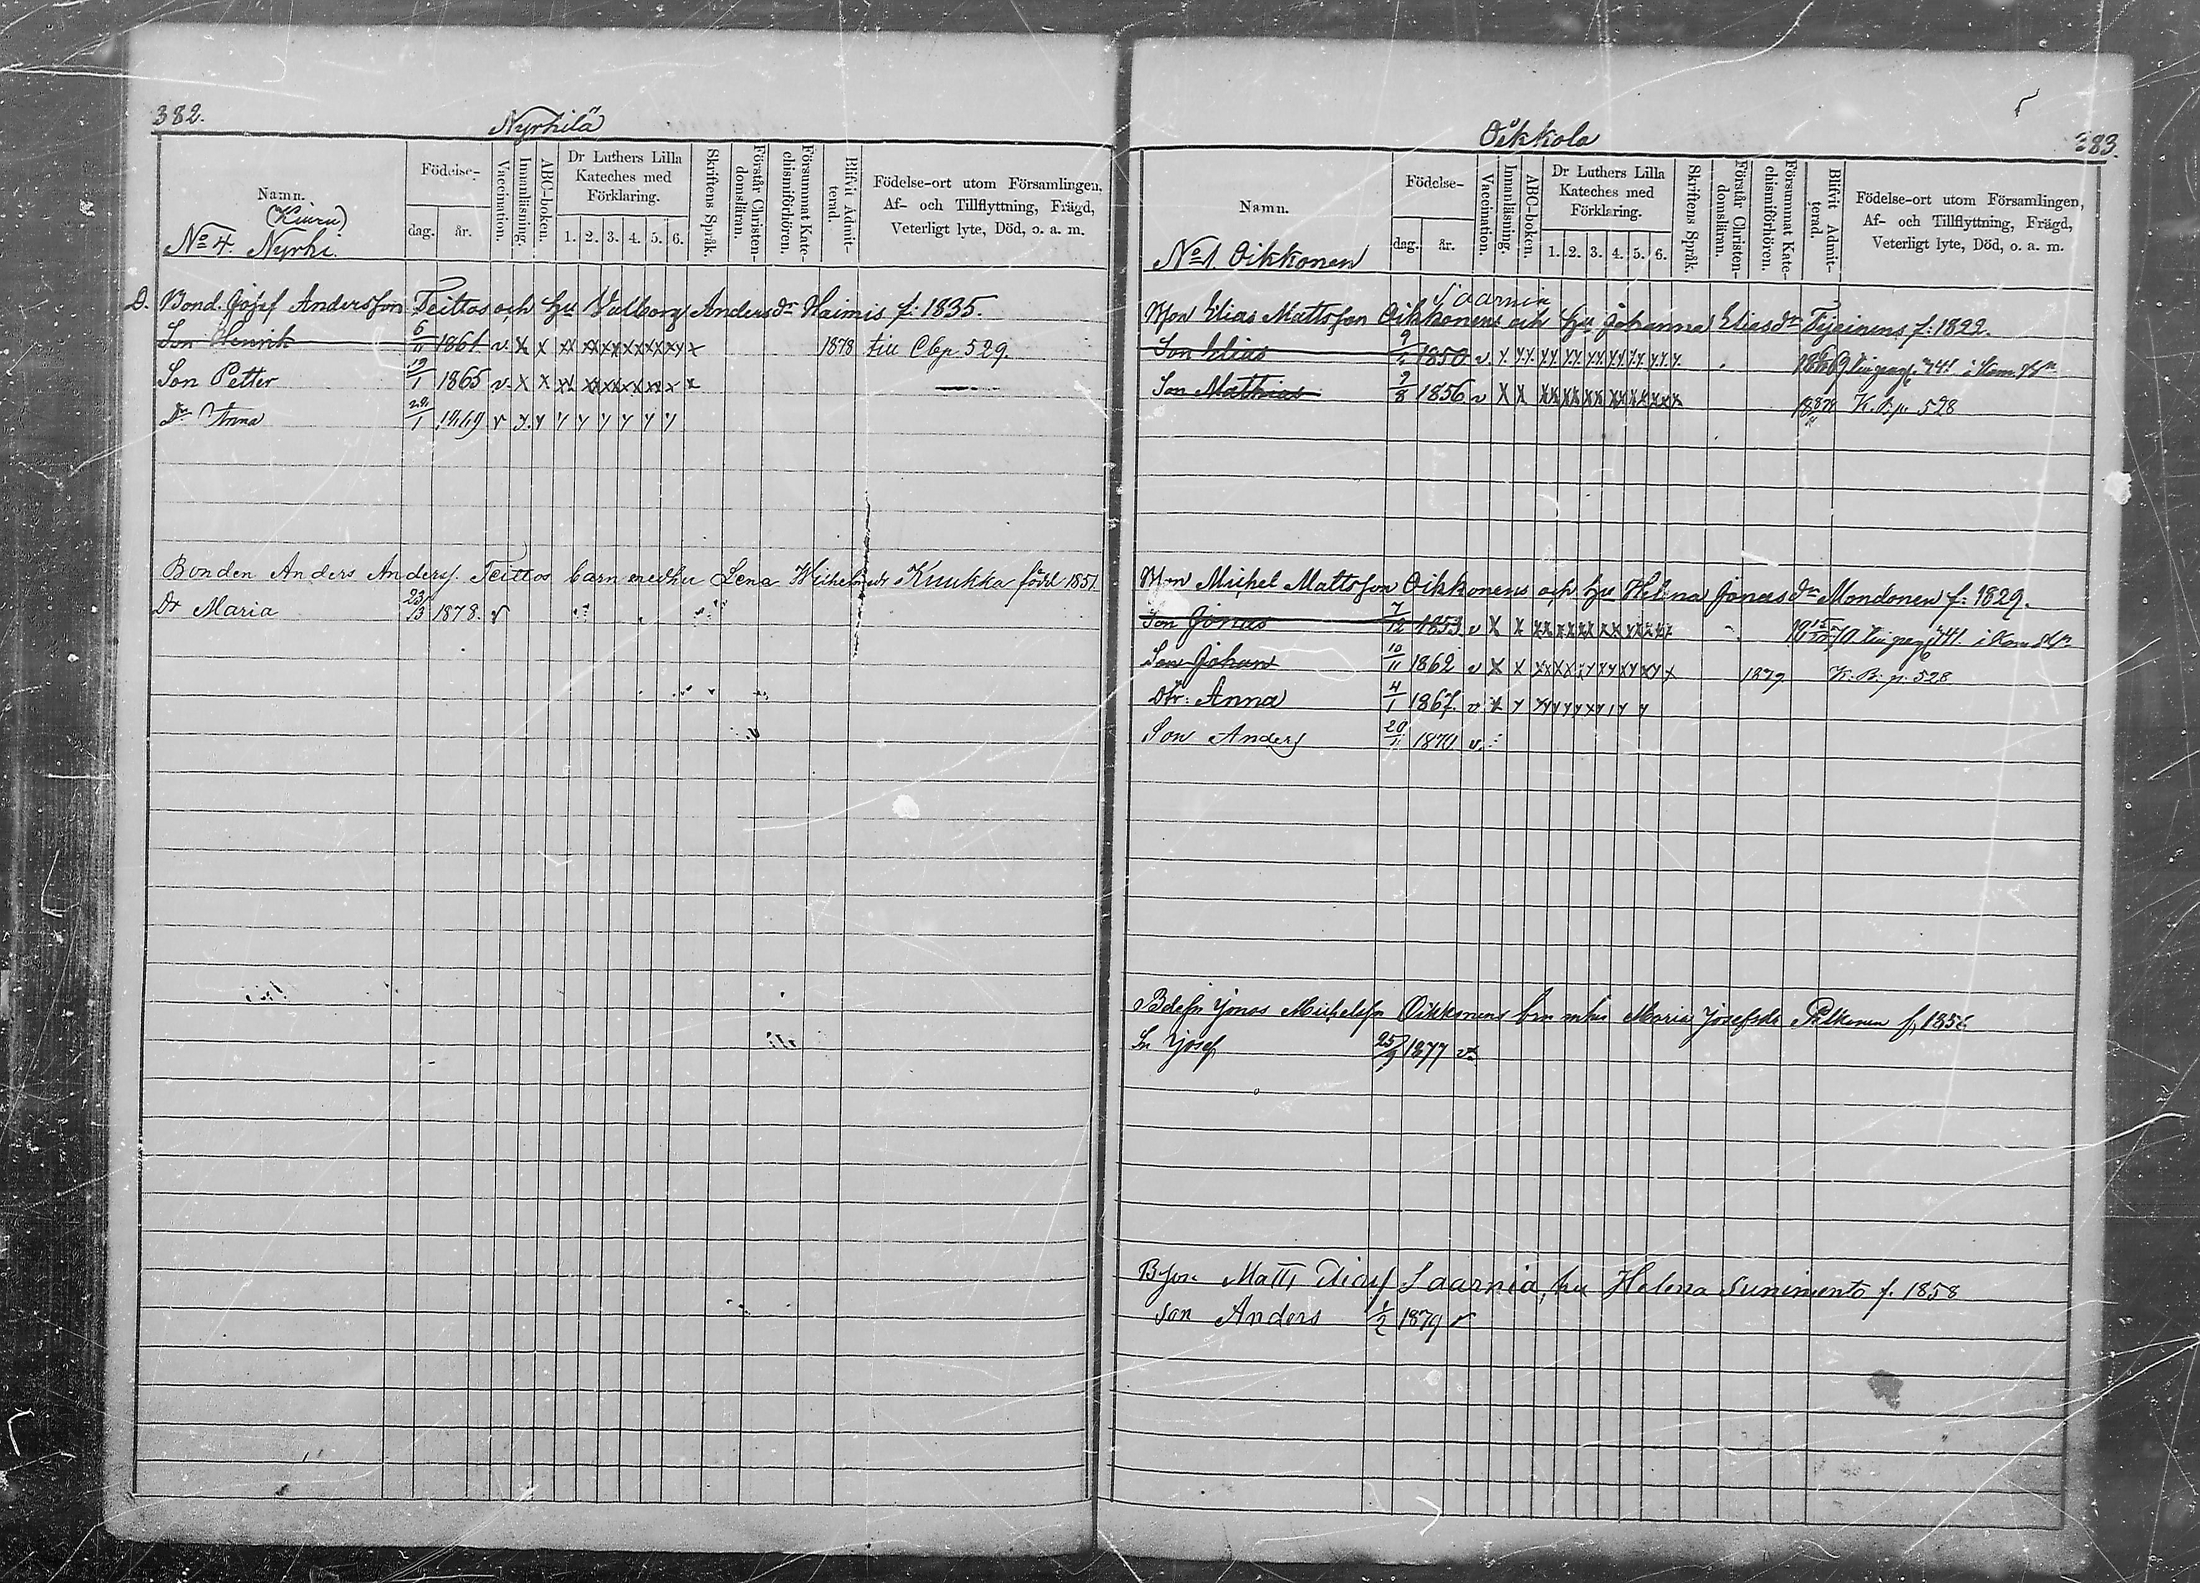 382.
Nyrhilä
Namn.
(Kiuru)
No 4. Nyrhi.
Födelse-
dag. år.
Vaccination.
Innanläsning.
ABC-boken.
Dr Luthers Lilla
Kateches med
Förklaring.
1. 2. 3. 4. 5. 6.
Skriftens Språk.
Förstår Christen-
domslämn.
Försummat Kate-
chismiförhören.
Blifvit Admit-
terad.
Födelse-ort utom Församlingen,
Af- och Tillflyttning, Frägd,
Veterligt lyte, Död, o. a. m.
D. Bond. Josef Andersson Teittas och hu Valborg Andersdr Haimis f. 1835.
Son Henrik 6/11 1861 v. x x xx xx xx xx xx xy x 1878 till Cbp 529.
Son Petter 19/1 1865 v. x x xx xx xx xx xx x x
Dr Anna 29/1 1869 v y. y y y y y y y
Bonden Anders Anders. Teittos barn medhu Lena Wilhelmsdr Knukka född 1851
Dr Maria 23/3 1878. v
383.
Oikkola
Namn.
No 1. Oikkonen
Födelse-
dag. år.
Vaccination.
Innanläsning.
ABC-boken.
Dr Luthers Lilla
Kateches med
Förklaring.
1. 2. 3. 4. 5. 6.
Skriftens Språk.
Förstår Christen-
domslämn.
Försummat Kate-
chismiförhören.
Blifvit Admit-
terad.
Födelse-ort utom Församlingen,
Af- och Tillflyttning, Frägd,
Veterligt lyte, Död, o. a. m.
Saarnia
Mon Elias Mattsson Oikkonens och hu Johanna Eliasdr Tijainens f. 1822.
Son Elias 1850 v. y yy yy yy yy yy yy y.y.y.
Son Mathias 9/8 1856 v x x xx xx xx xx xx xx x K. B. p. 528
Mon Michel Mattsson Oikkonens och hu Helena Jonasdr Mondonen f. 1829.
Son Jonas 7/12 1853 v x x xx xx xx xx xx xx
Son Johan 10/11 1862 v x x xx xx yy yx yx y x 1879 K. B. p. 528
Dtr: Anna 4/1 1867. v x y yy yy xy y y
Son Anders 20/11 1870 v.
Bdesn Jonas Michelsn Oikkonens brn mhu Maria Josefsdr Pulkonen f. 185
Sn Josef 25/9 1877 v.
Bson Matti Eliasf Saarnia, hu Helena Sunimento f. 1858
Son Anders 1/2 1879 v